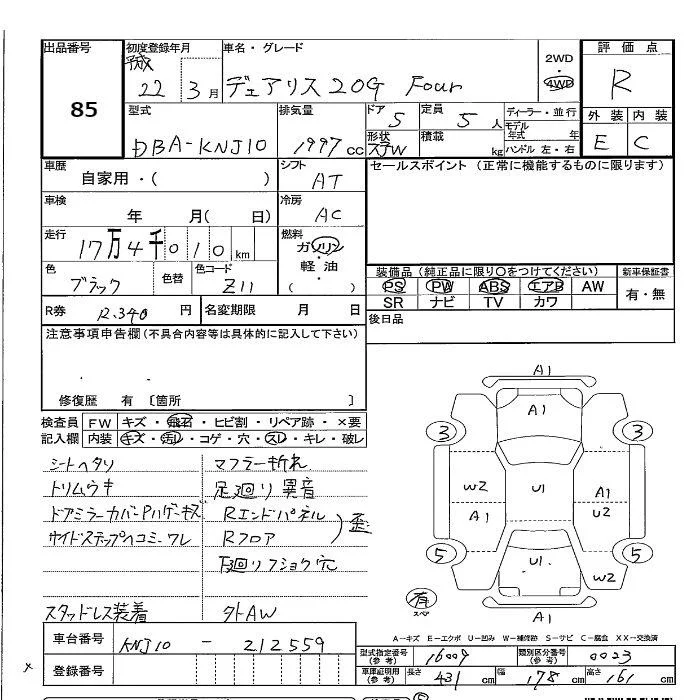 出品番号
85
初度登録年月
平成
22 3月
車名・グレード
デュアリス 20G Four
2WD
4WD
評価点
R
外装 内装
E C
型式
DBA-KNJ10
排気量
1997 cc
ドア
5
定員
5 人
形状
5JW
積載
kg
ディーラー・並行
モデル
年式 年
ハンドル 左・右
車歴
自家用・( )
シフト
AT
セールスポイント (正常に機能するものに限ります)
車検
年 月( 日)
冷房
AC
走行
17万4千010km
燃料
ガソリン
軽・油
( )
色
ブラック
色替
色コード
Z11
装備品(純正品に限り○をつけてください)
PS PW ABS エアB AW
SR ナビ TV カワ
新車保証書
有・無
R券 R.340 円
名変期限 月 日
後日品
注意事項申告欄(不具合内容等は具体的に記入して下さい)
修復歴 有 〔箇所 〕
検査員
記入欄
FW キズ・飛石・ヒビ割・リペア跡・×要
内装 キズ・汚レ・コゲ・穴・スレ・キレ・破レ
シートヘタリ
トリムウキ
ドアミラーカバー P.Hゲーキズ
サイドステップヘコミ.ワレ
スタッドレス装着
マフラー折れ
足廻り異音
Rエンドパネル
Rフロア
歪
下廻りフショク穴
外AW
A1
A1
3 3
W2
A1
U1
A1
U2
5 5
U1
W2
有
スペア
A1
A-キズ E-エクボ U-凹み W-補修跡 S-サビ C-腐食 XX-交換済
車台番号
KNJ10 - 212559
登録番号
型式指定番号
(参考)
16009
類別区分番号
(参考)
0023
車庫証明用
(参考)
長さ 431 cm 幅 178 cm 高さ 161 cm